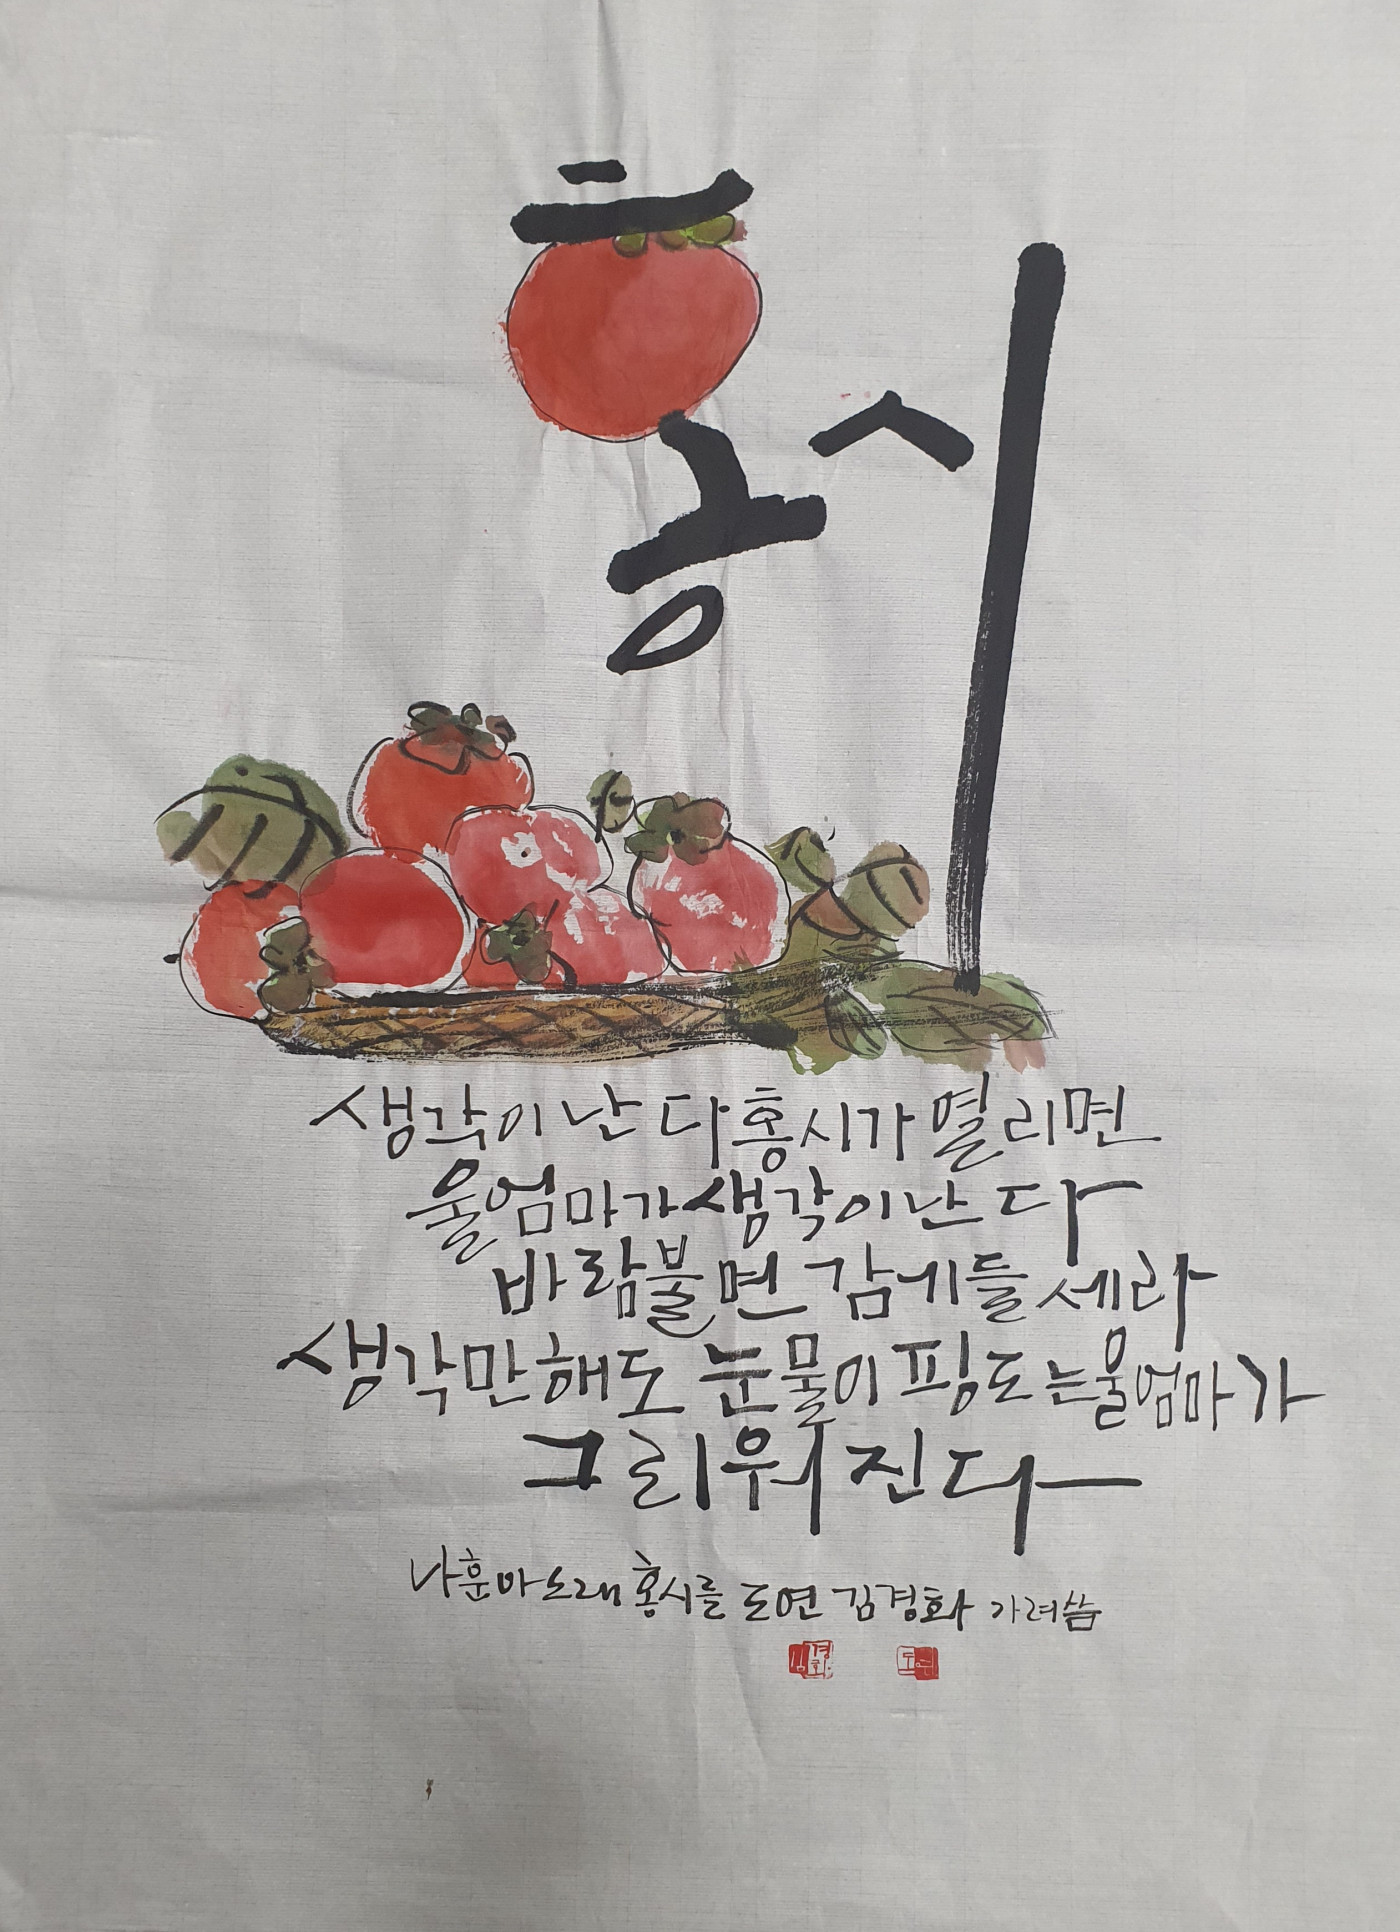 홍시
생각이 난다 홍시가 열리면
울엄마가 생각이 난다
바람불면 감기들세라
생각만해도 눈물이 핑도는 울엄마가
그리워진다
나훈아 노래 홍시를 도연 김경화 가려씀
김경화 도연